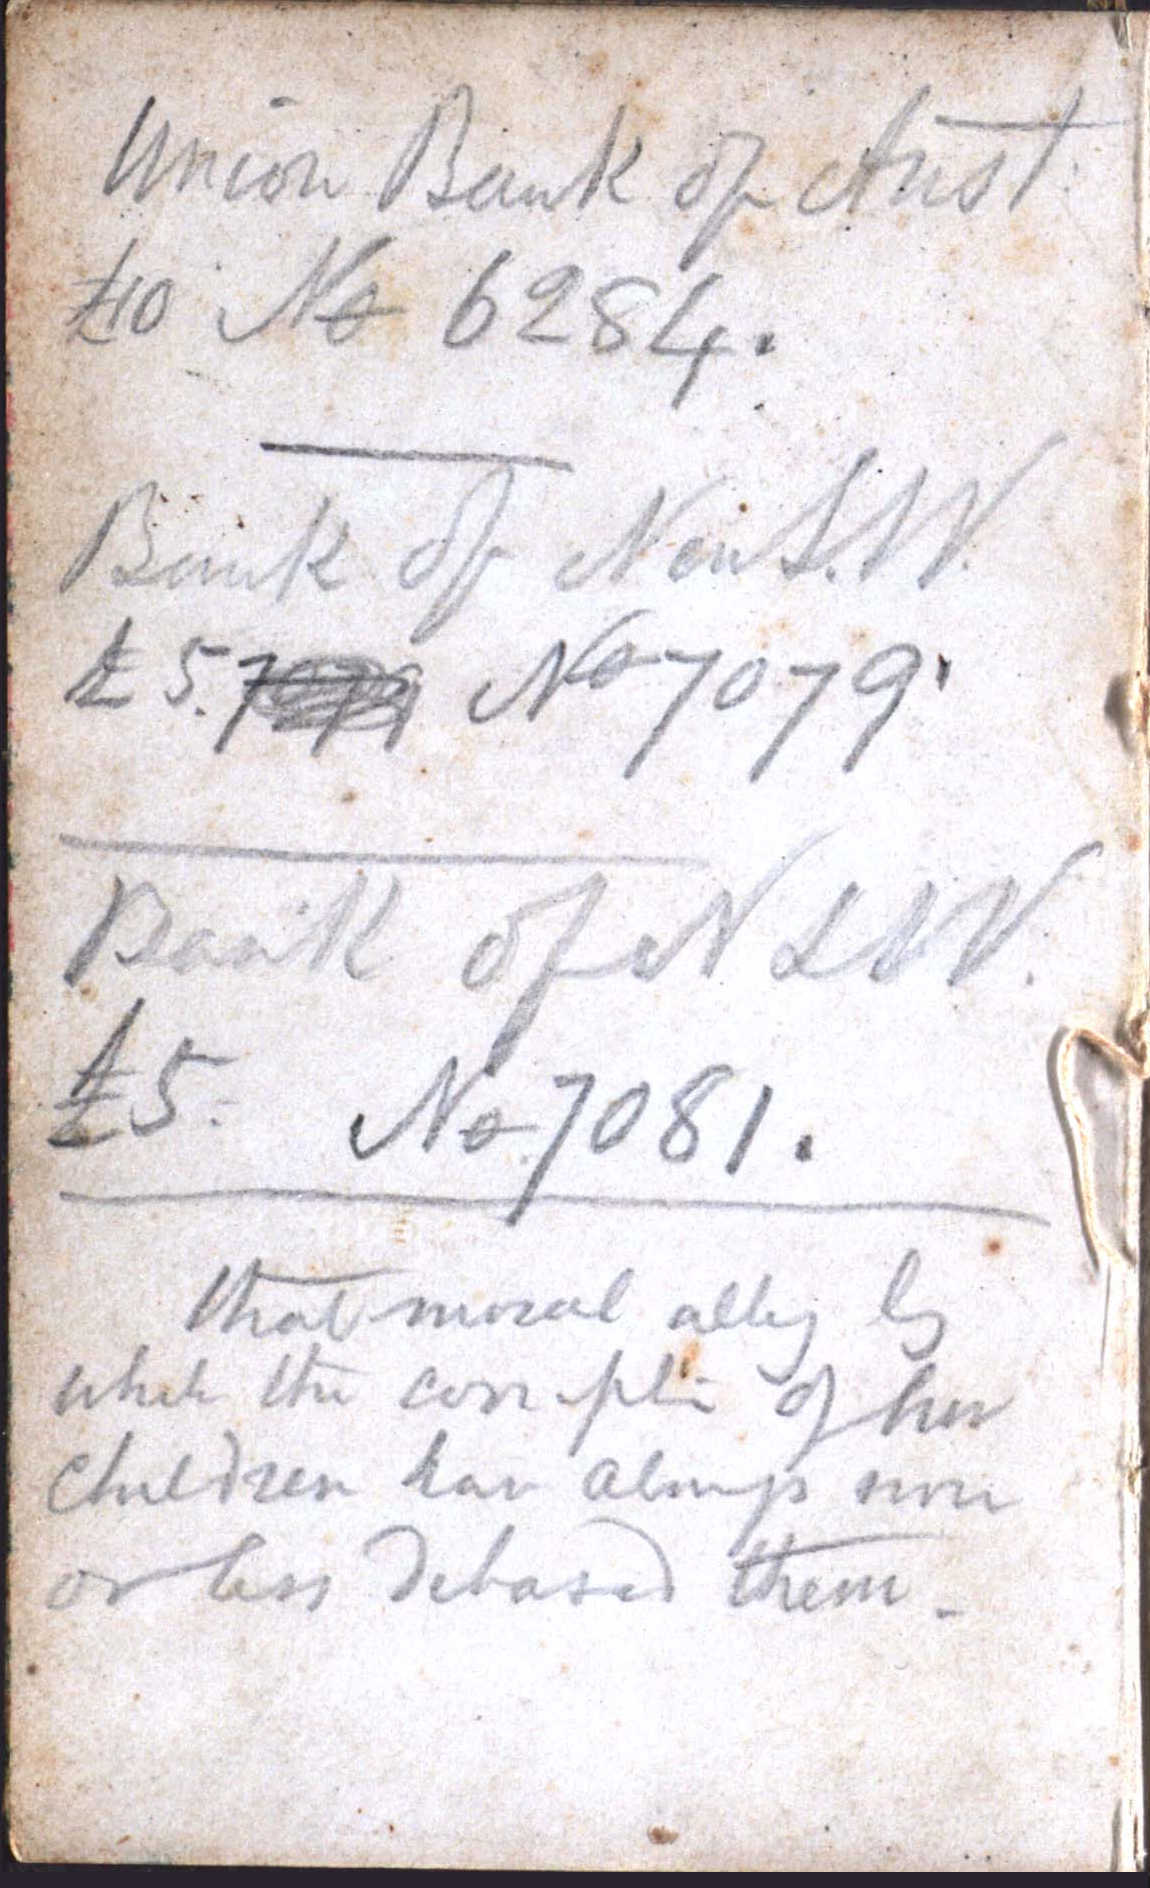 Union Bank of Aust
£10 No 6284.
Bank of New S.W.
£5. No 7079.
Bank of N S W.
£5. No 7081.
that moral alloy by
which the corruption of her
children have always more
or less debased them.